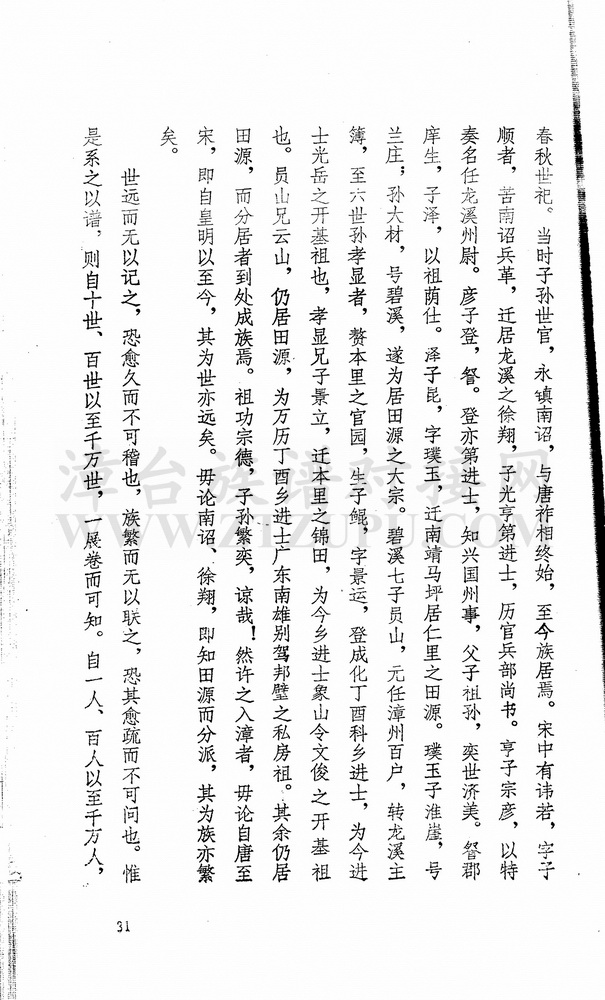 春秋世祀。当时子孙世官，永镇南诏，与唐祚相终始，至今族居焉。宋中有讳若，字子
顺者，苦南诏兵革，迁居龙溪之徐翔，子光亨第进士，历官兵部尚书。亨子宗彦，以特
奏名任龙溪州尉。彦子登，詧。登亦第进士，知兴国州事，父子祖孙，奕世济美。詧郡
庠生，子泽，以祖荫仕。泽子昆，字璞玉，迁南靖马坪居仁里之田源。璞玉子淮崖，号
兰庄；孙大材，号碧溪，遂为居田源之大宗。碧溪七子员山，元任漳州百户，转龙溪主
簿，至六世孙孝显者，赘本里之官园，生子鲲，字景运，登成化丁酉科乡进士，为今进
士光岳之开基祖也，孝显兄子景立，迁本里之锦田，为今乡进士象山令文俊之开基祖
也。员山兄云山，仍居田源，为万历丁酉乡进士广东南雄别驾邦璧之私房祖。其余仍居
田源，而分居者到处成族焉。祖功宗德，子孙繁奕，谅哉！然许之入漳者，毋论自唐至
宋，即自皇明以至今，其为世亦远矣。毋论南诏、徐翔，即知田源而分派，其为族亦繁
矣。
世远而无以记之，恐愈久而不可稽也，族繁而无以联之，恐其愈疏而不可问也。惟
是系之以谱，则自十世、百世以至千万世，一展卷而可知。自一人、百人以至千万人，
31
漳台族谱对接网
WWW.ZTZUPU.COM